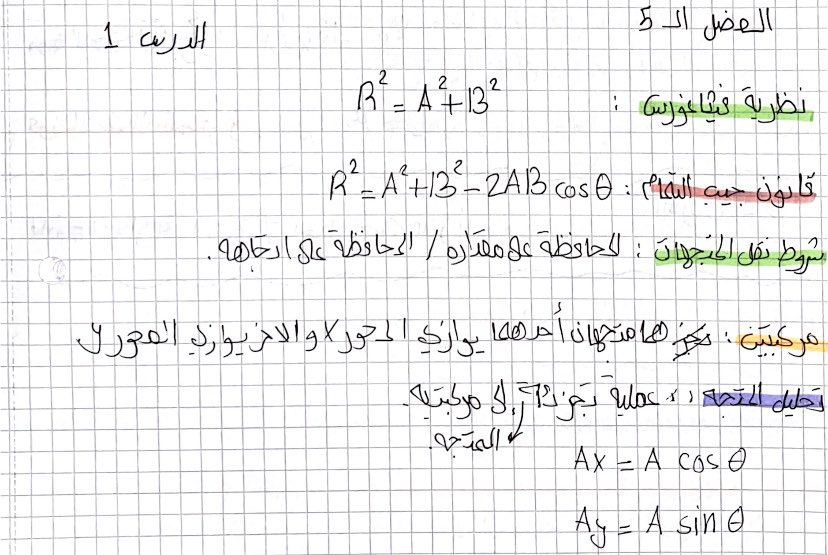 الفصل الـ 5
الدرس 1
نظرية فيثاغورس : R² = A² + B²
قانون جيب التمام : R² = A² + B² - 2AB cos θ
شروط نقل المتجهات : المحافظة على مقداره / المحافظة على اتجاهه.
مركبتين : هما متجهان أحدهما يوازي المحور x والاخر يوازي المحور y
تحليل المتجه : عملية تجزئة إلى مركبتيه.
المتجه.
Ax = A cos θ
Ay = A sin θ